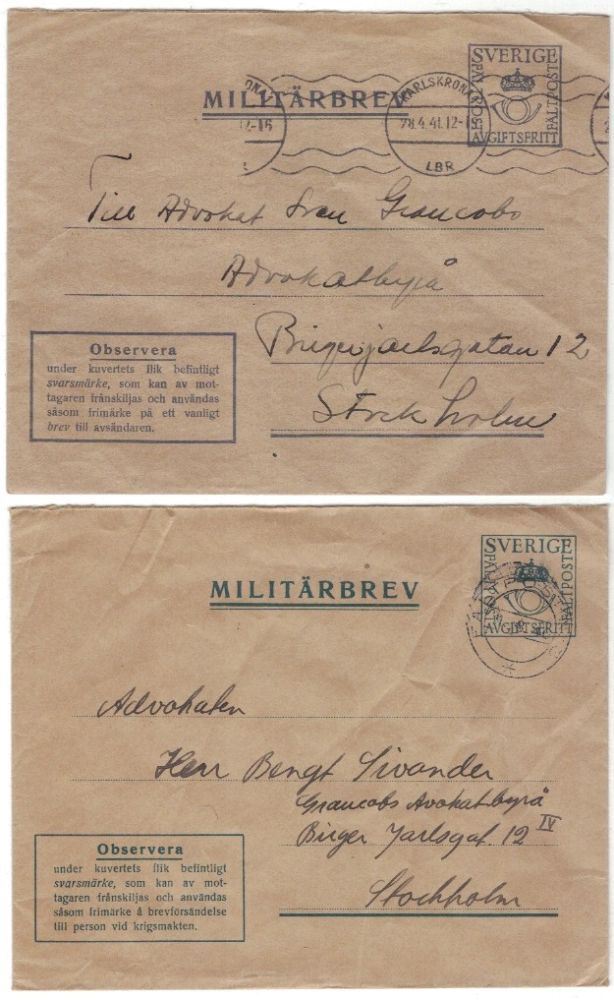 SVERIGE
FÄLTPOST
AVGIFTSFRITT
MILITÄRBREV
KARLSKRONA
12-16
28.4.41.12-16
LBR
Till Advokat Sven Graucobs
Advokatbyrå
Birgerjarlsgatan 12
Stockholm
Observera
under kuvertets flik befintligt
svarsmärke, som kan av mot-
tagaren frånskiljas och användas
såsom frimärke på ett vanligt
brev till avsändaren.
SVERIGE
AVGIFTSFRITT
MILITÄRBREV
Advokaten
Herr Bengt Sivander
Graucobs Avokatbyrå
Birger Jarlsgat. 12 IV
Stockholm
Observera
under kuvertets flik befintligt
svarsmärke, som kan av mot-
tagaren frånskiljas och användas
såsom frimärke å brevförsändelse
till person vid krigsmakten.